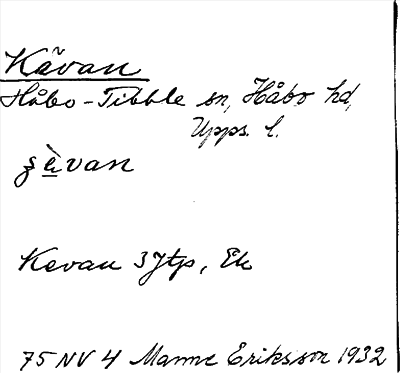 Kävan
Håbo-Tibble sn, Håbo hd,
Upps. l.
Kevan 3 Jtp, Ek
75 NV 4 Manne Eriksson 1932